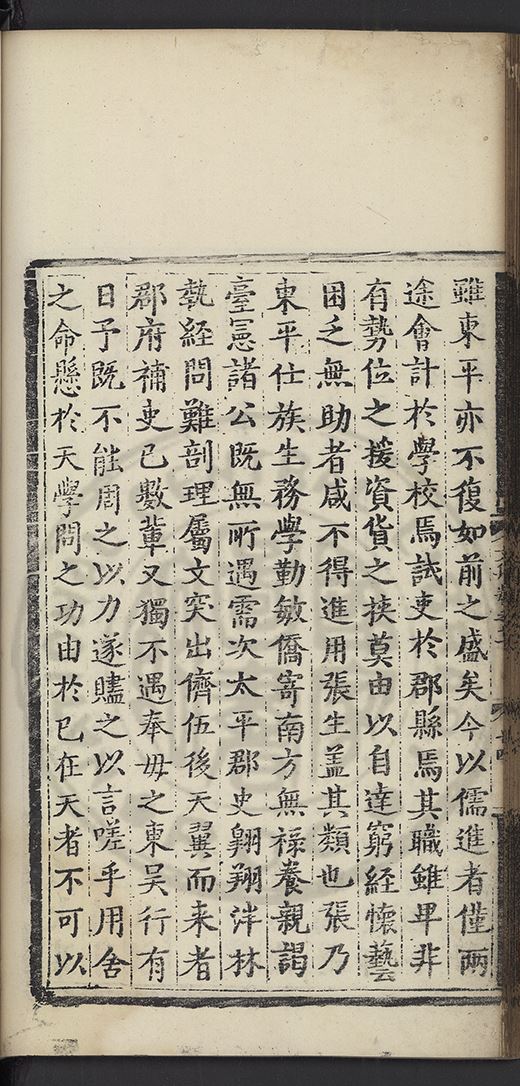 雖東平亦不復如前之盛矣今以儒進者僅兩
途會計於學校焉試吏於郡縣焉其職雖卑非
有勢位之援資貨之挟莫由以自達窮經懐藝
困乏無助者咸不得進用張生盖其類也張乃
東平仕族生務學勤敏僑寄南方無禄養親謁
臺憲諸公既無所遇需次太平郡史翱翔泮林
執經問難剖理屬文突出儕伍後天翼而来者
郡府補吏已數輩又獨不遇奉毋之東吴行有
日予既不能周之以力遂贐之以言嗟乎用舍
之命懸於天學問之功由於已在天者不可以